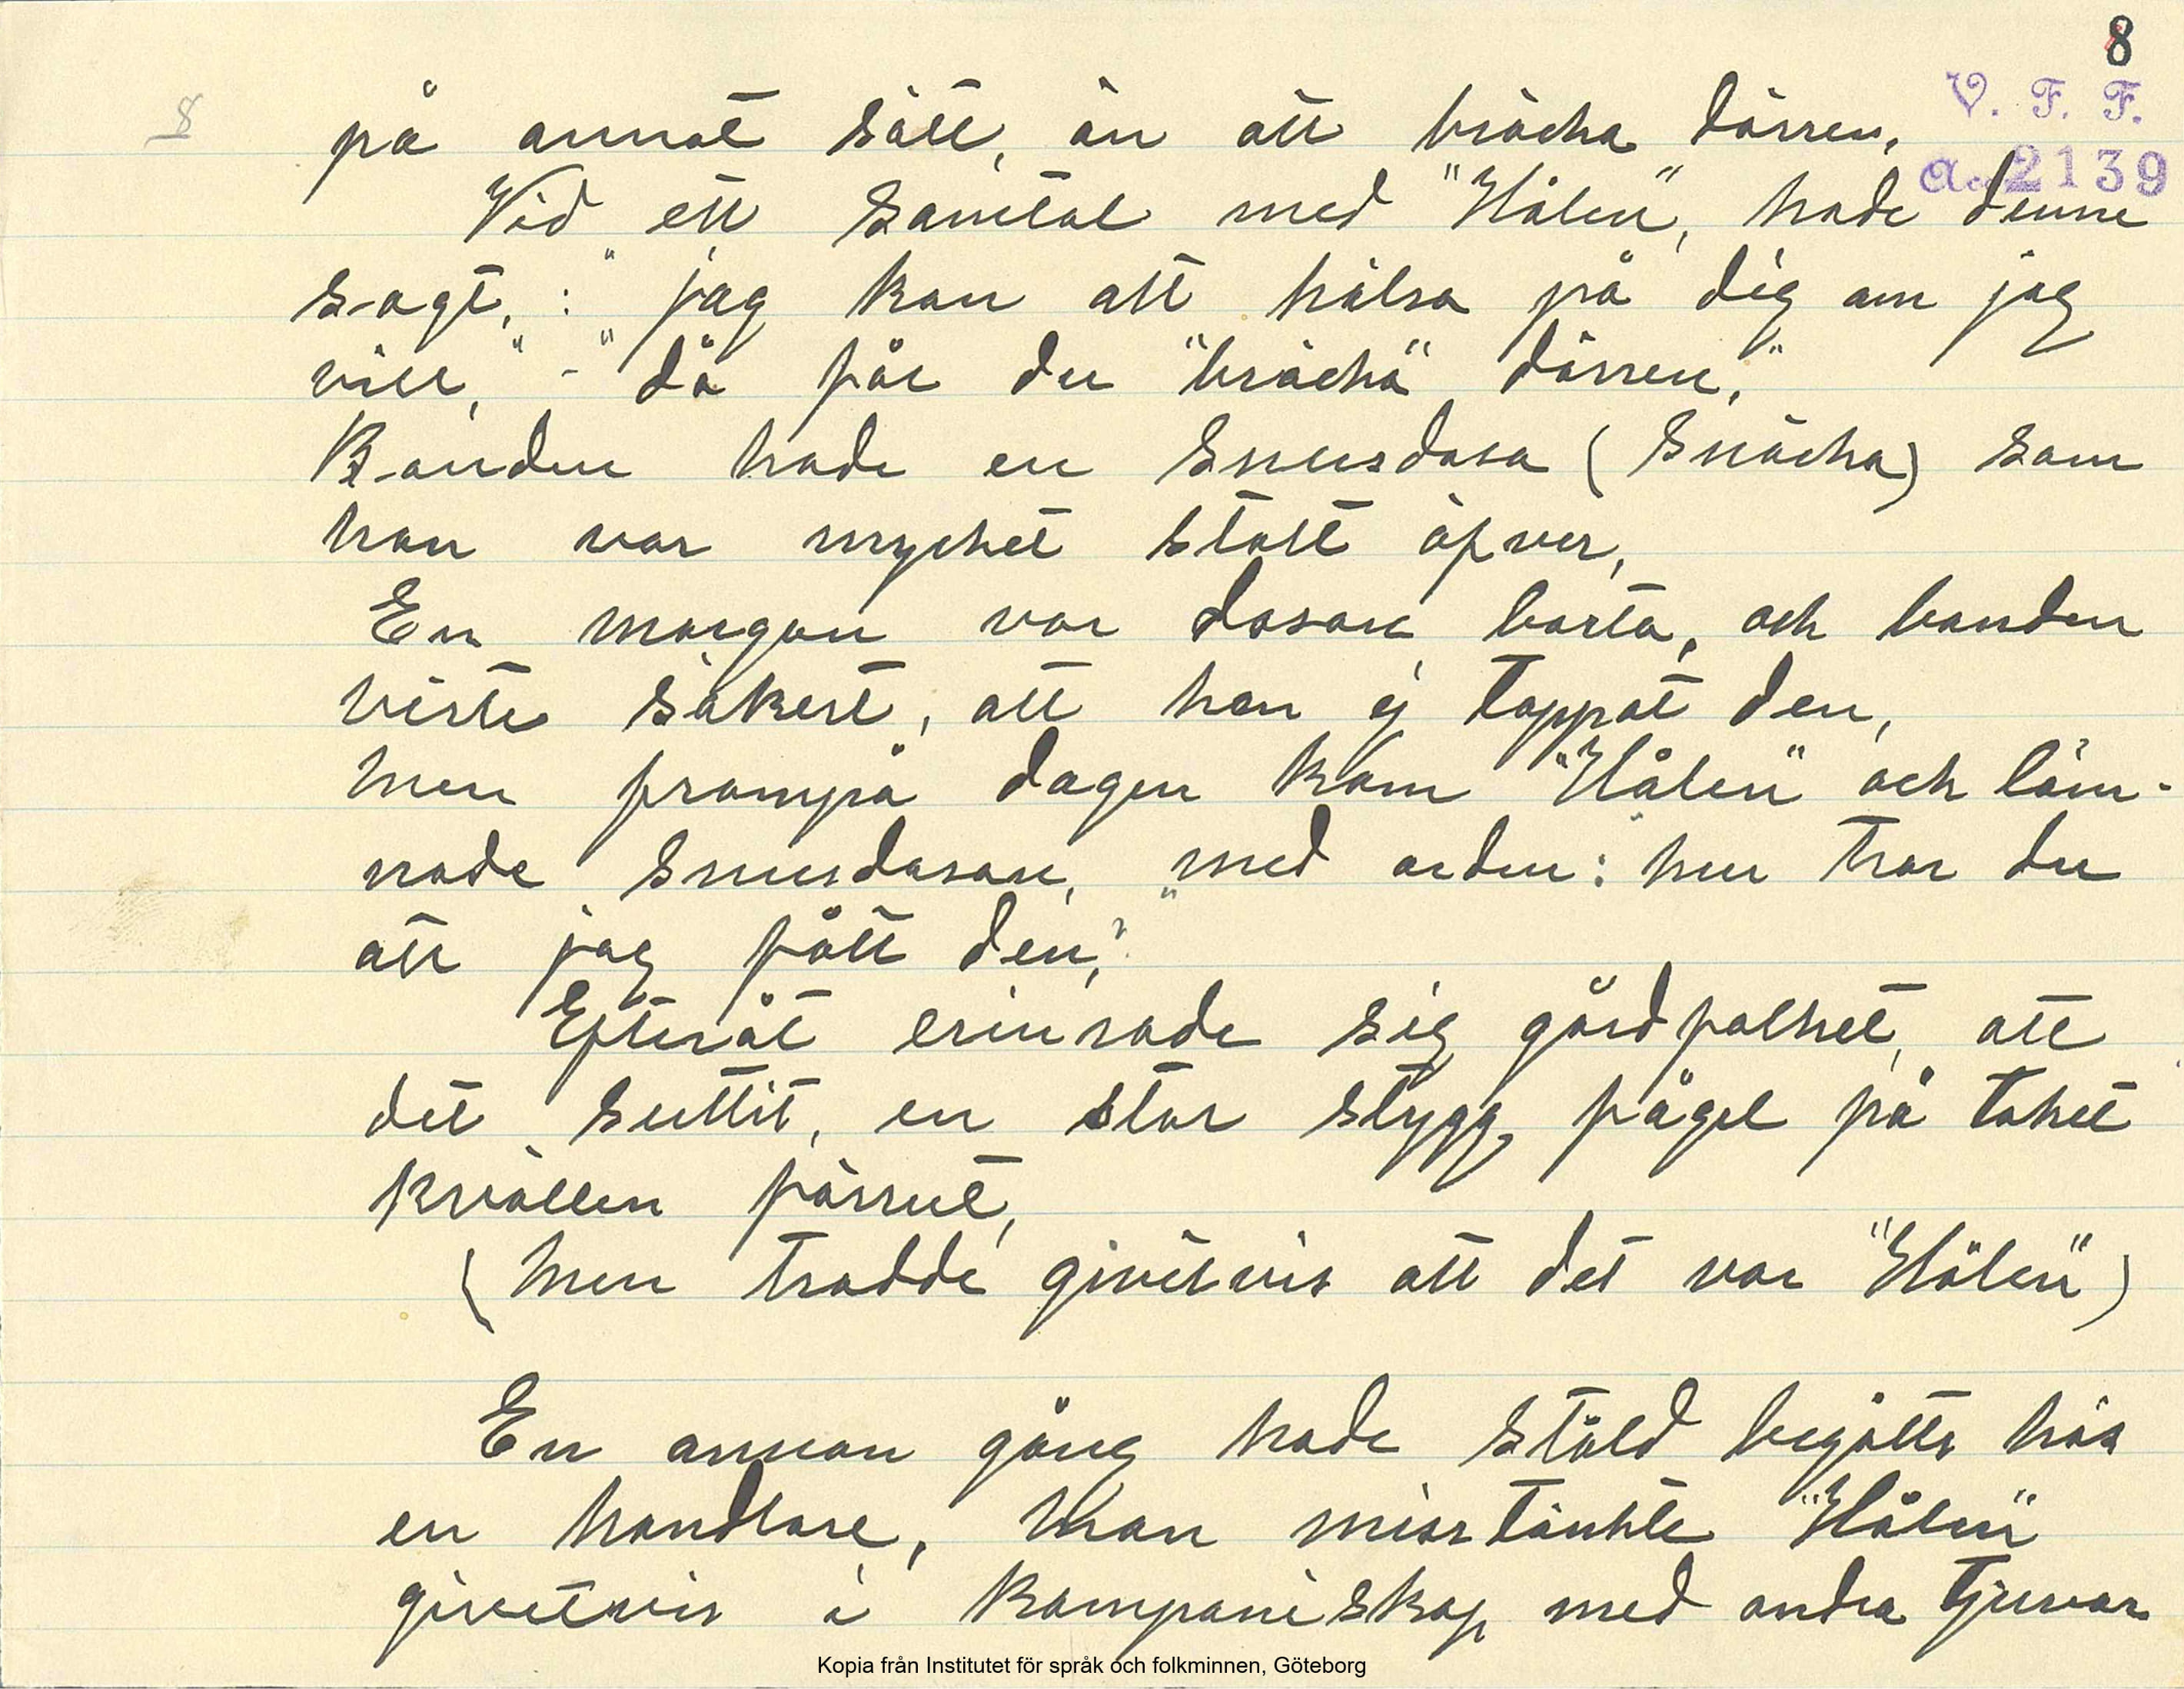 8
V. F. F.
8
på annat sätt, än att bräcka dörren,
Acc. 2139
Vid ett samtal med "Hålen", hade denne
sagt, : "jag kan att hälsa på dig om jag
vill," - "då får du "bräcka" dörren,"
Bonden hade en snusdosa (Snäcka) som
han var mycket stolt öfver,
En morgon var dosan borta, och bonden
viste säkert, att han ej tappat den,
Men frampå dagen kom "Hålen" och läm-
nade snusdosan, med orden: "hur tror du
att jag fått den,?"
Efteråt erinrade sig gårdfolket, att
det suttit, en stor stygg fågel på taket
kvällen förrut,
(Men trodde givetvis att det var "Hålen")
En annan gång hade stöld begåtts hos
en handlare, Man misstänkte "Hålen"
givetvis i kompaniskap med andra tjuvar
Kopia från Institutet för språk och folkminnen, Göteborg